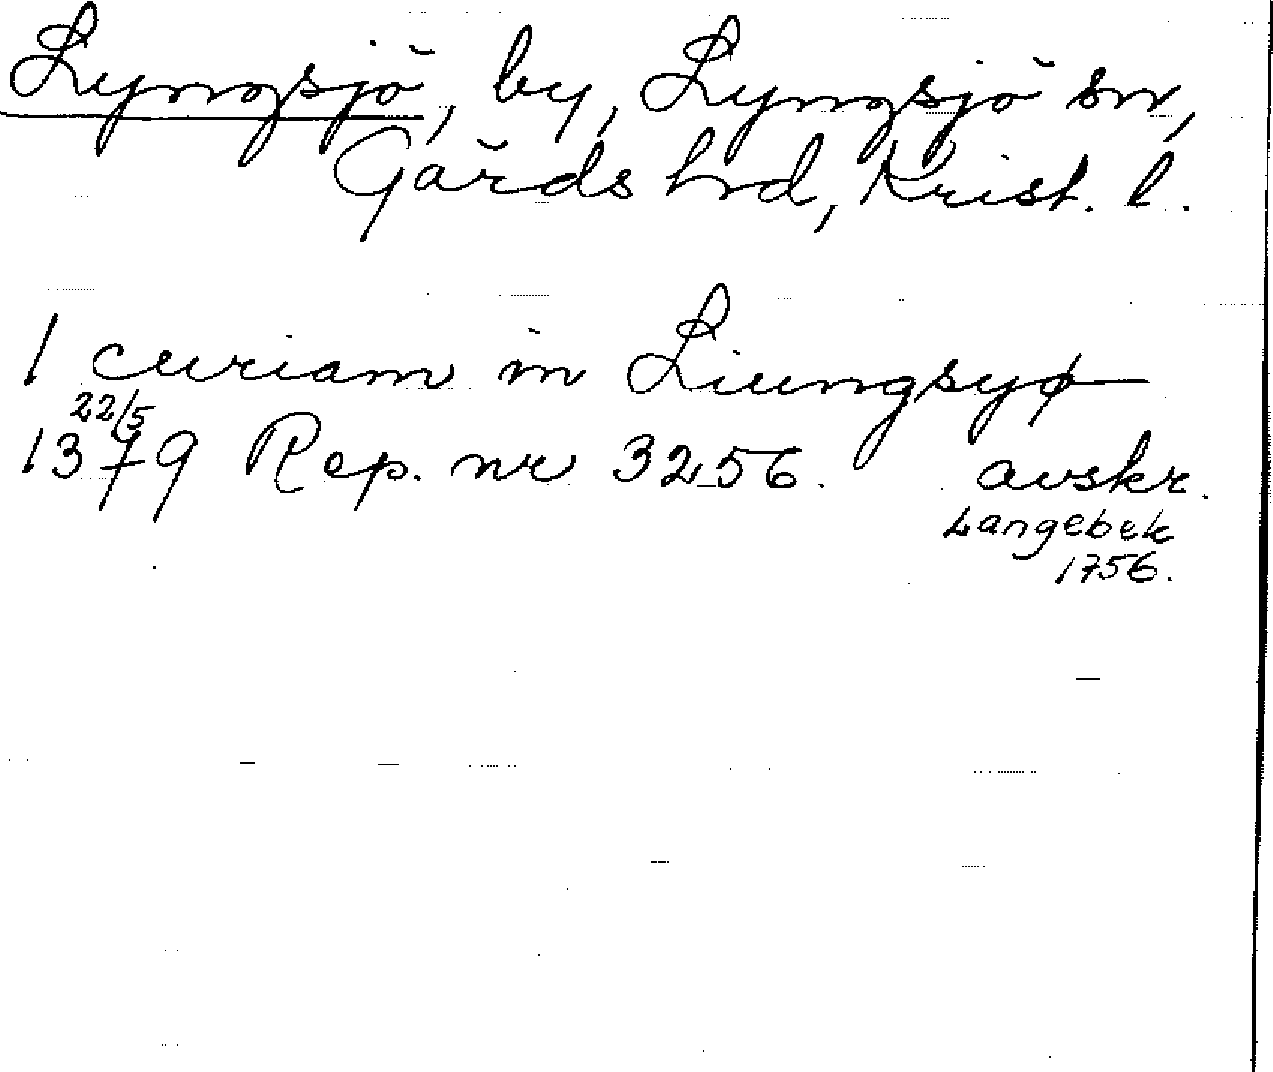 Lyngsjö, by, Lyngsjö sn,
Gärds hd, Krist. l.
1 curiam in Liungsyø
22/5
1379 Rep. nr 3256. avskr.
Langebek
1756.